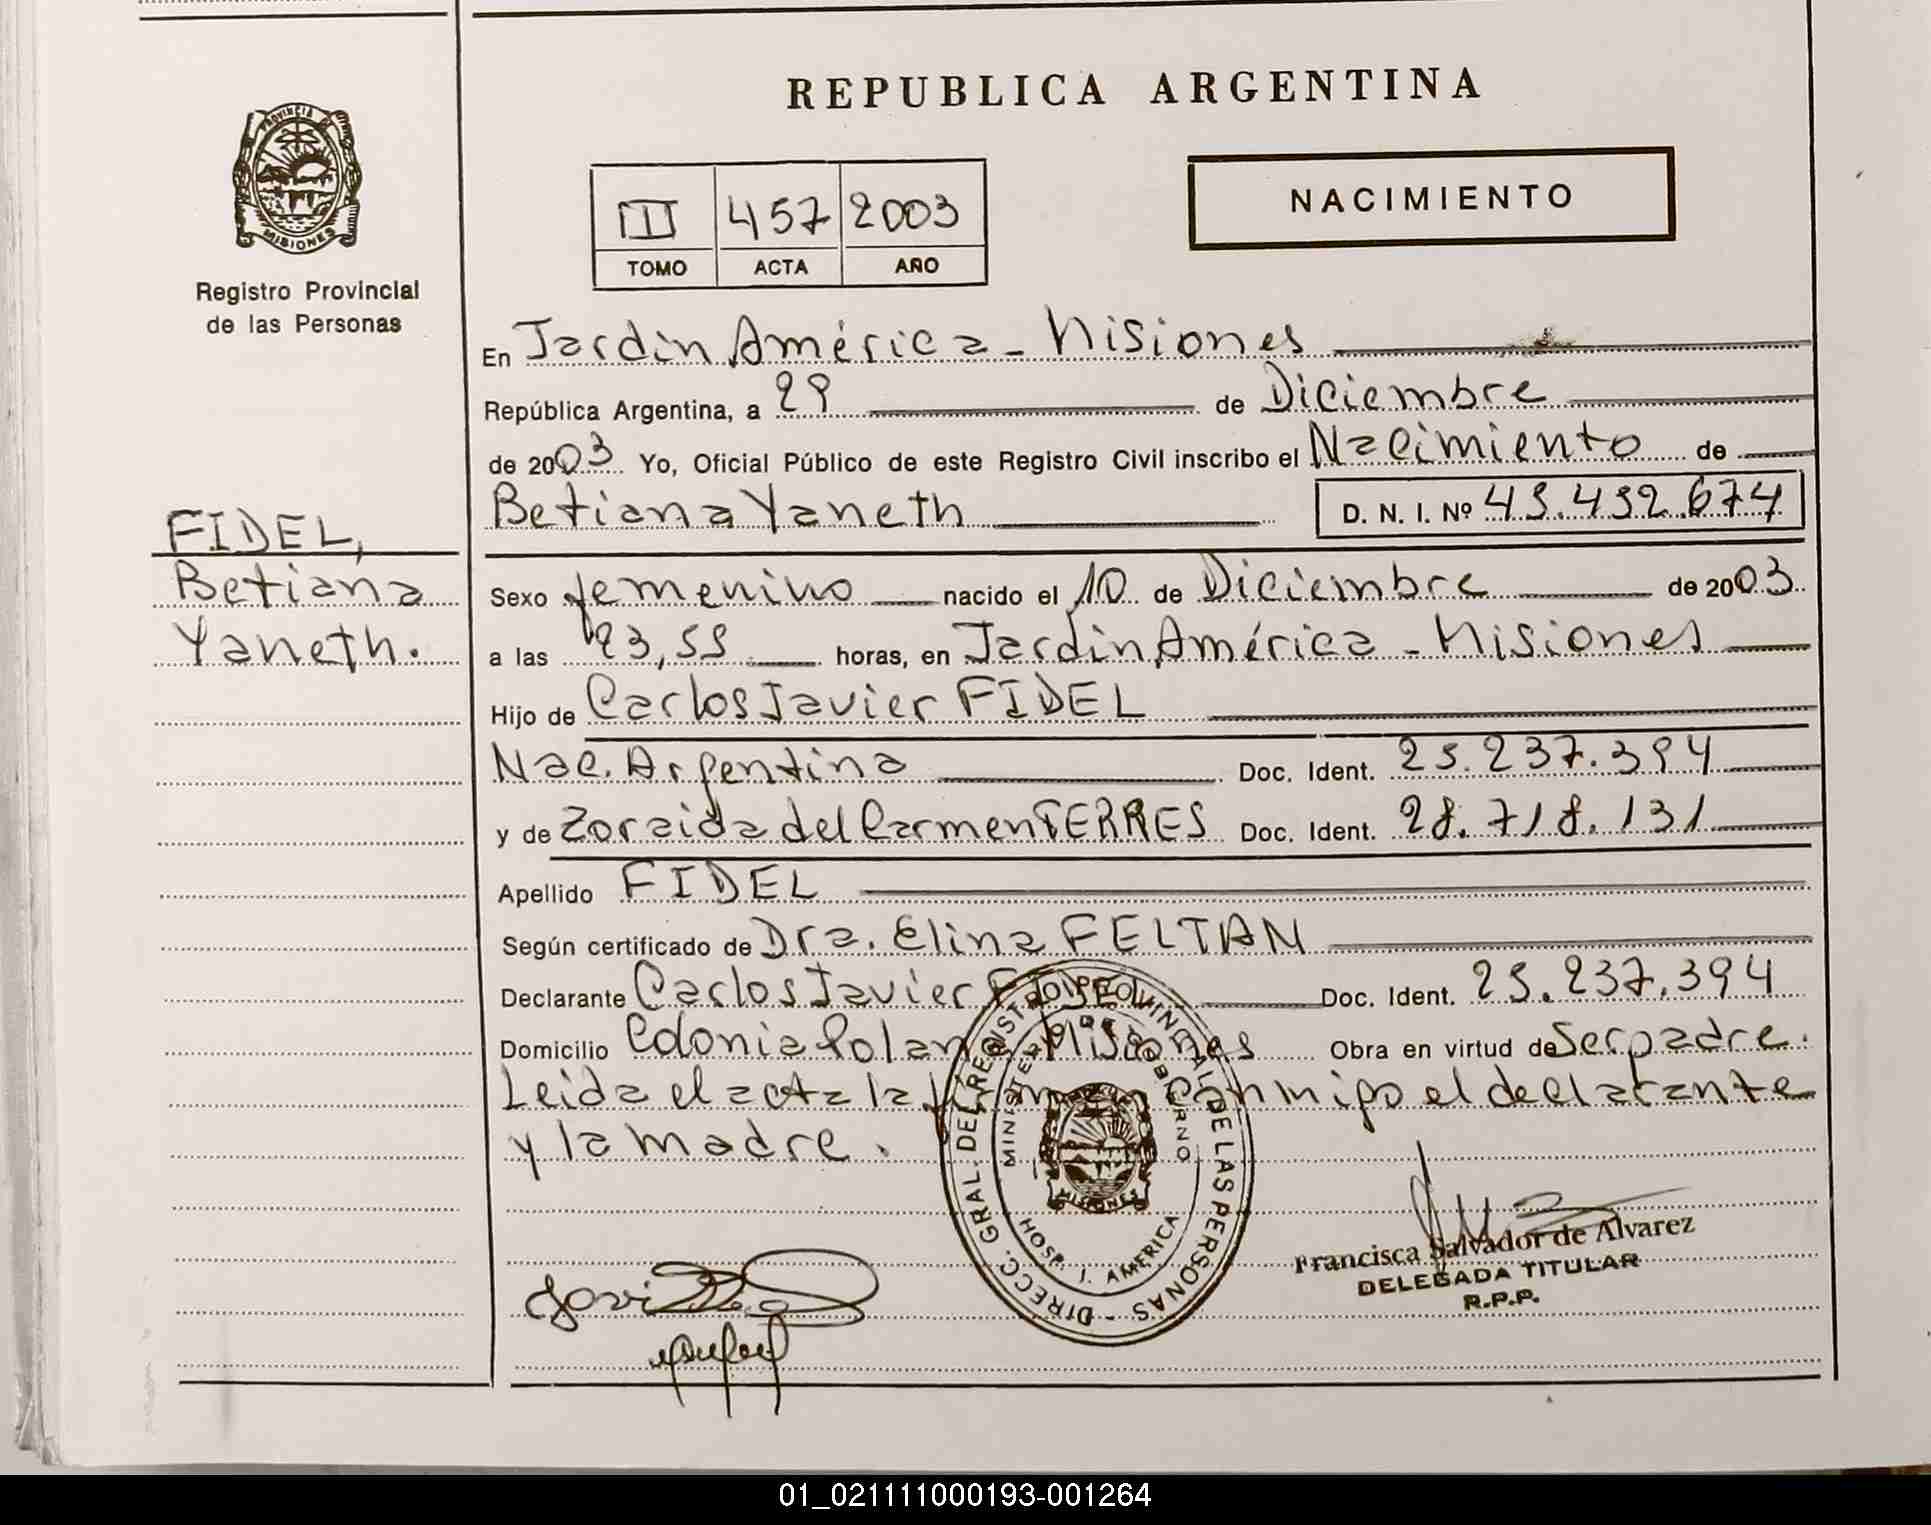 REPUBLICA ARGENTINA
PROVINCIA DE
MISIONES
Registro Provincial
de las Personas
II 457 2003
TOMO ACTA AÑO
NACIMIENTO
En Jardin América - Misiones
República Argentina, a 29 de Diciembre
de 2003 Yo, Oficial Público de este Registro Civil inscribo el Nacimiento de
Betiana Yaneth D. N. I. Nº 45.452.674
FIDEL,
Betiana
Yaneth.
Sexo femenino nacido el 10 de Diciembre de 2003
a las 23,55 horas, en Jardin América - Misiones
Hijo de Carlos Javier FIDEL
Nac. Argentina Doc. Ident. 25.237.394
y de Zoraida del Carmen FERRES Doc. Ident. 28.718.131
Apellido FIDEL
Según certificado de Dra. Elina FELTAN
Declarante Carlos Javier Doc. Ident. 25.237.394
Domicilio Colonia Polana Misiones Obra en virtud de Ser padre.
Leida el acta la firman conmigo el declarante
y la madre.
DIRECC. GRAL. DEL REGISTRO PROVINCIAL DE LAS PERSONAS -
MINISTERIO DE GOBIERNO
MISIONES
HOSP. J. AMERICA
Francisca Salvador de Alvarez
DELEGADA TITULAR
R.P.P.
01_021111000193-001264